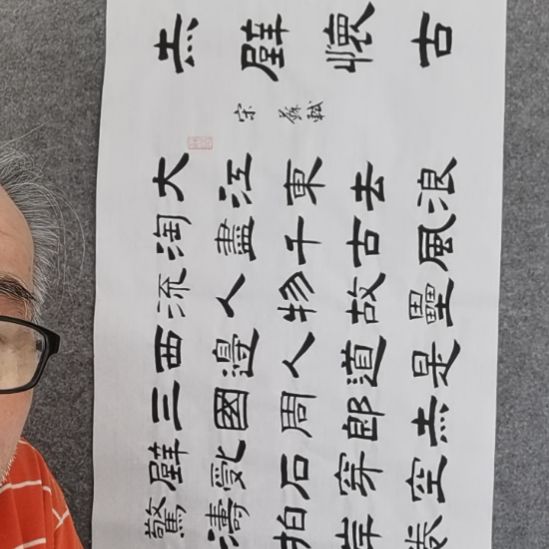 赤壁懷古
宋 蘇軾
大江東去浪
淘盡千古風
流人物故壘
西邊人道是
三國周郎赤
壁亂石穿空
驚濤拍岸